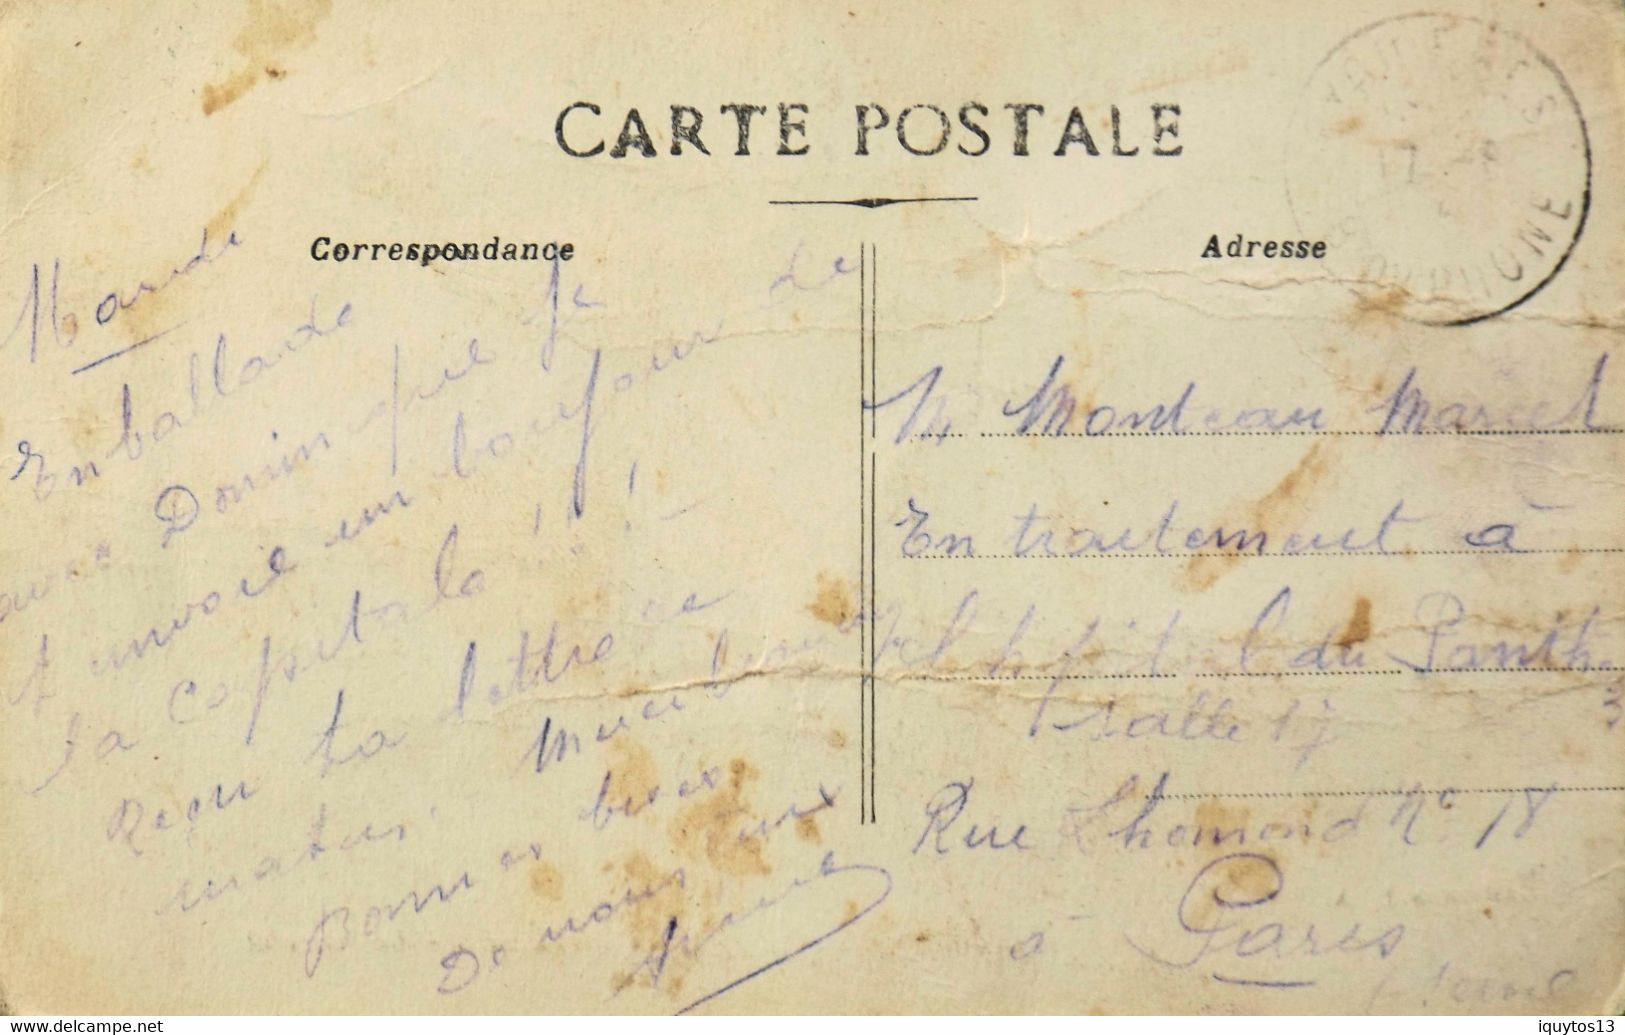 CARTE POSTALE
Correspondance
Adresse
Mardi
En ballade
avec Dominique je
t'envoie un bonjour de
la capitale!!!
Reçu ta lettre ce
matin. Merci
Bonnes bises
De nous deux
Mr Monteau Marcel
En traitement à
l'hopital du Panth
salle 17
Rue Lhomond N° 18
à Paris
iquytos13